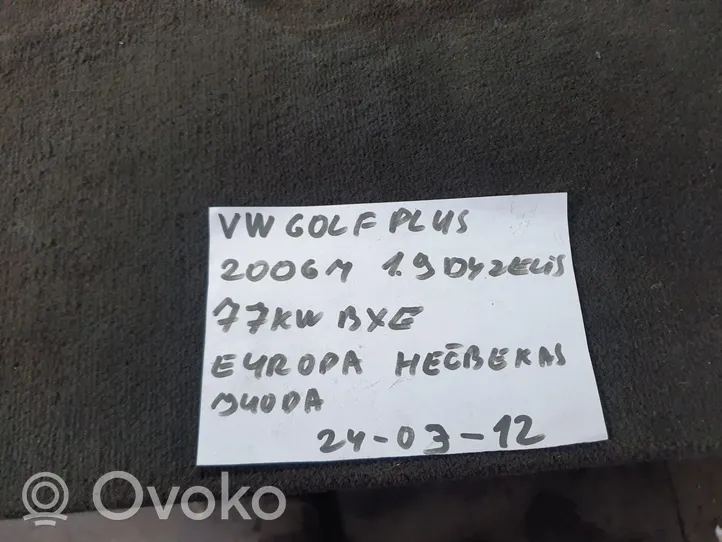 VW GOLF PLUS
2006M 1.9 DYZELIS
77KW BXE
EUROPA HEČBEKAS
JUODA
24-03-12
Ovoko